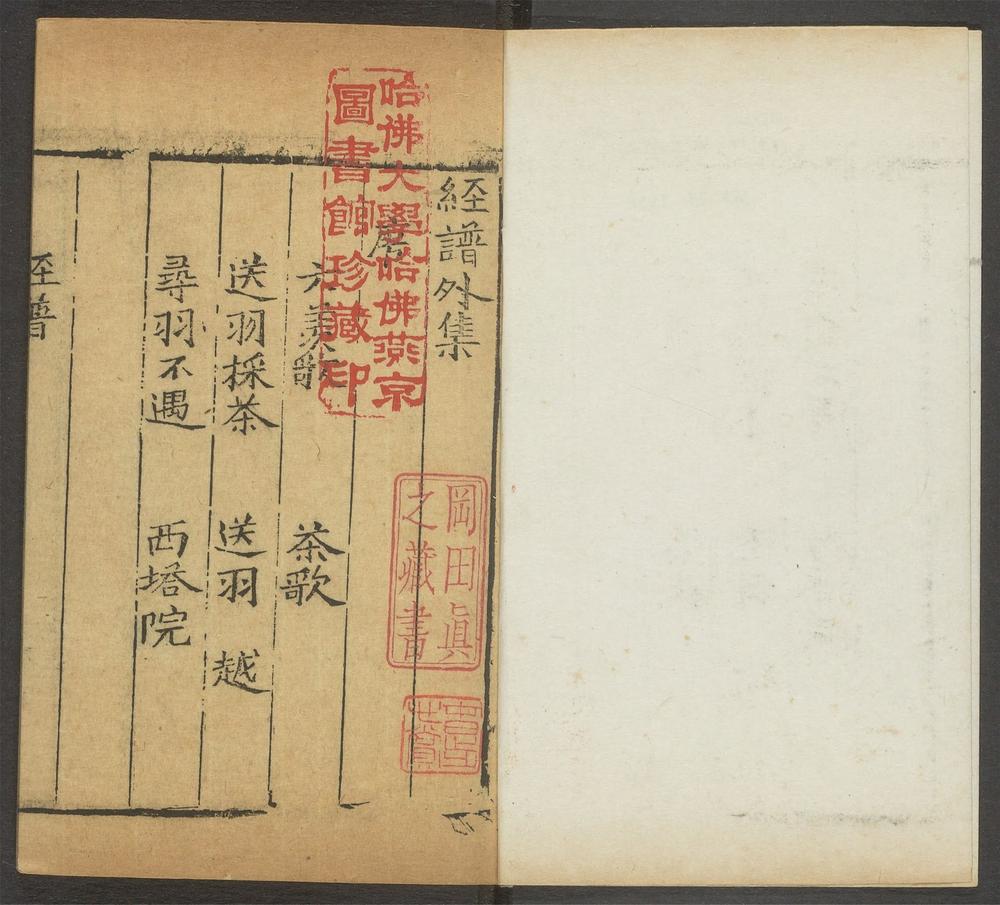 経譜外集
唐
六羨歌 茶歌
送羽採茶 送羽 越
尋羽不遇 西塔院
哈佛大學哈佛燕京
圖書館珍藏印
岡田真
之藏書